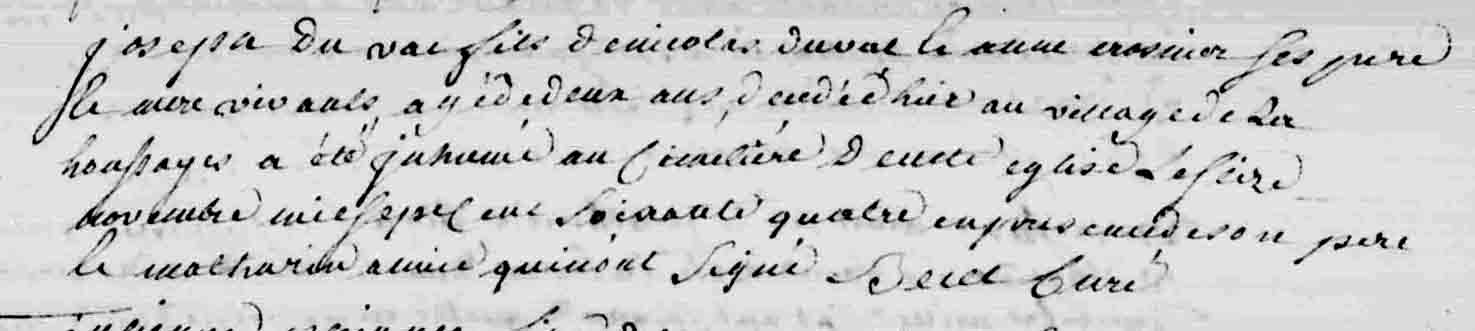 joseph du val fils de nicolas duval & anne crosnier ses pere
& mere vivants, agé de deux ans, decedé hier au village de La
houssayes a été jnhumé au Cimetière de cette eglise Le seize
novembre mil sept cent soixante quatre en presence de son pere
& mathurin qui n'ont signé Curé